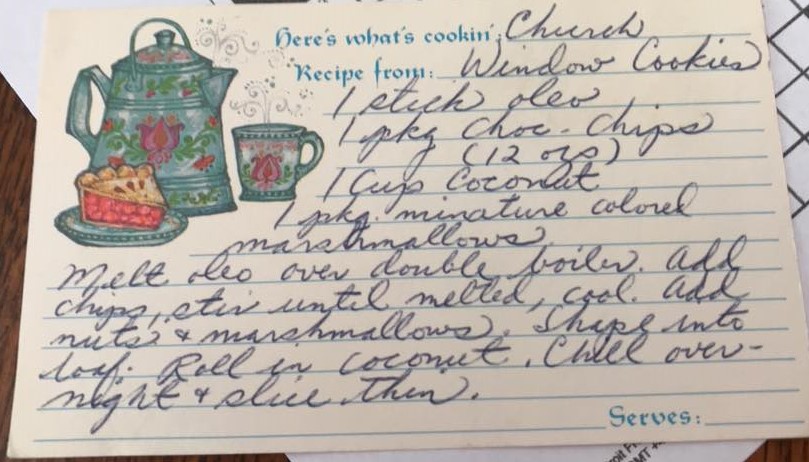 Here's what's cookin': Church
Recipe from: Window Cookies
1 stick oleo
1 pkg choc-chips
(12 ozs)
1 Cup Coconut
1 pkg. minature colored
marshmallows
Melt oleo over double boiler. Add
chips, stir until melted, cool. Add
nuts & marshmallows. Shape into
loaf. Roll in coconut. Chill over-
night & slice thin.
Serves: